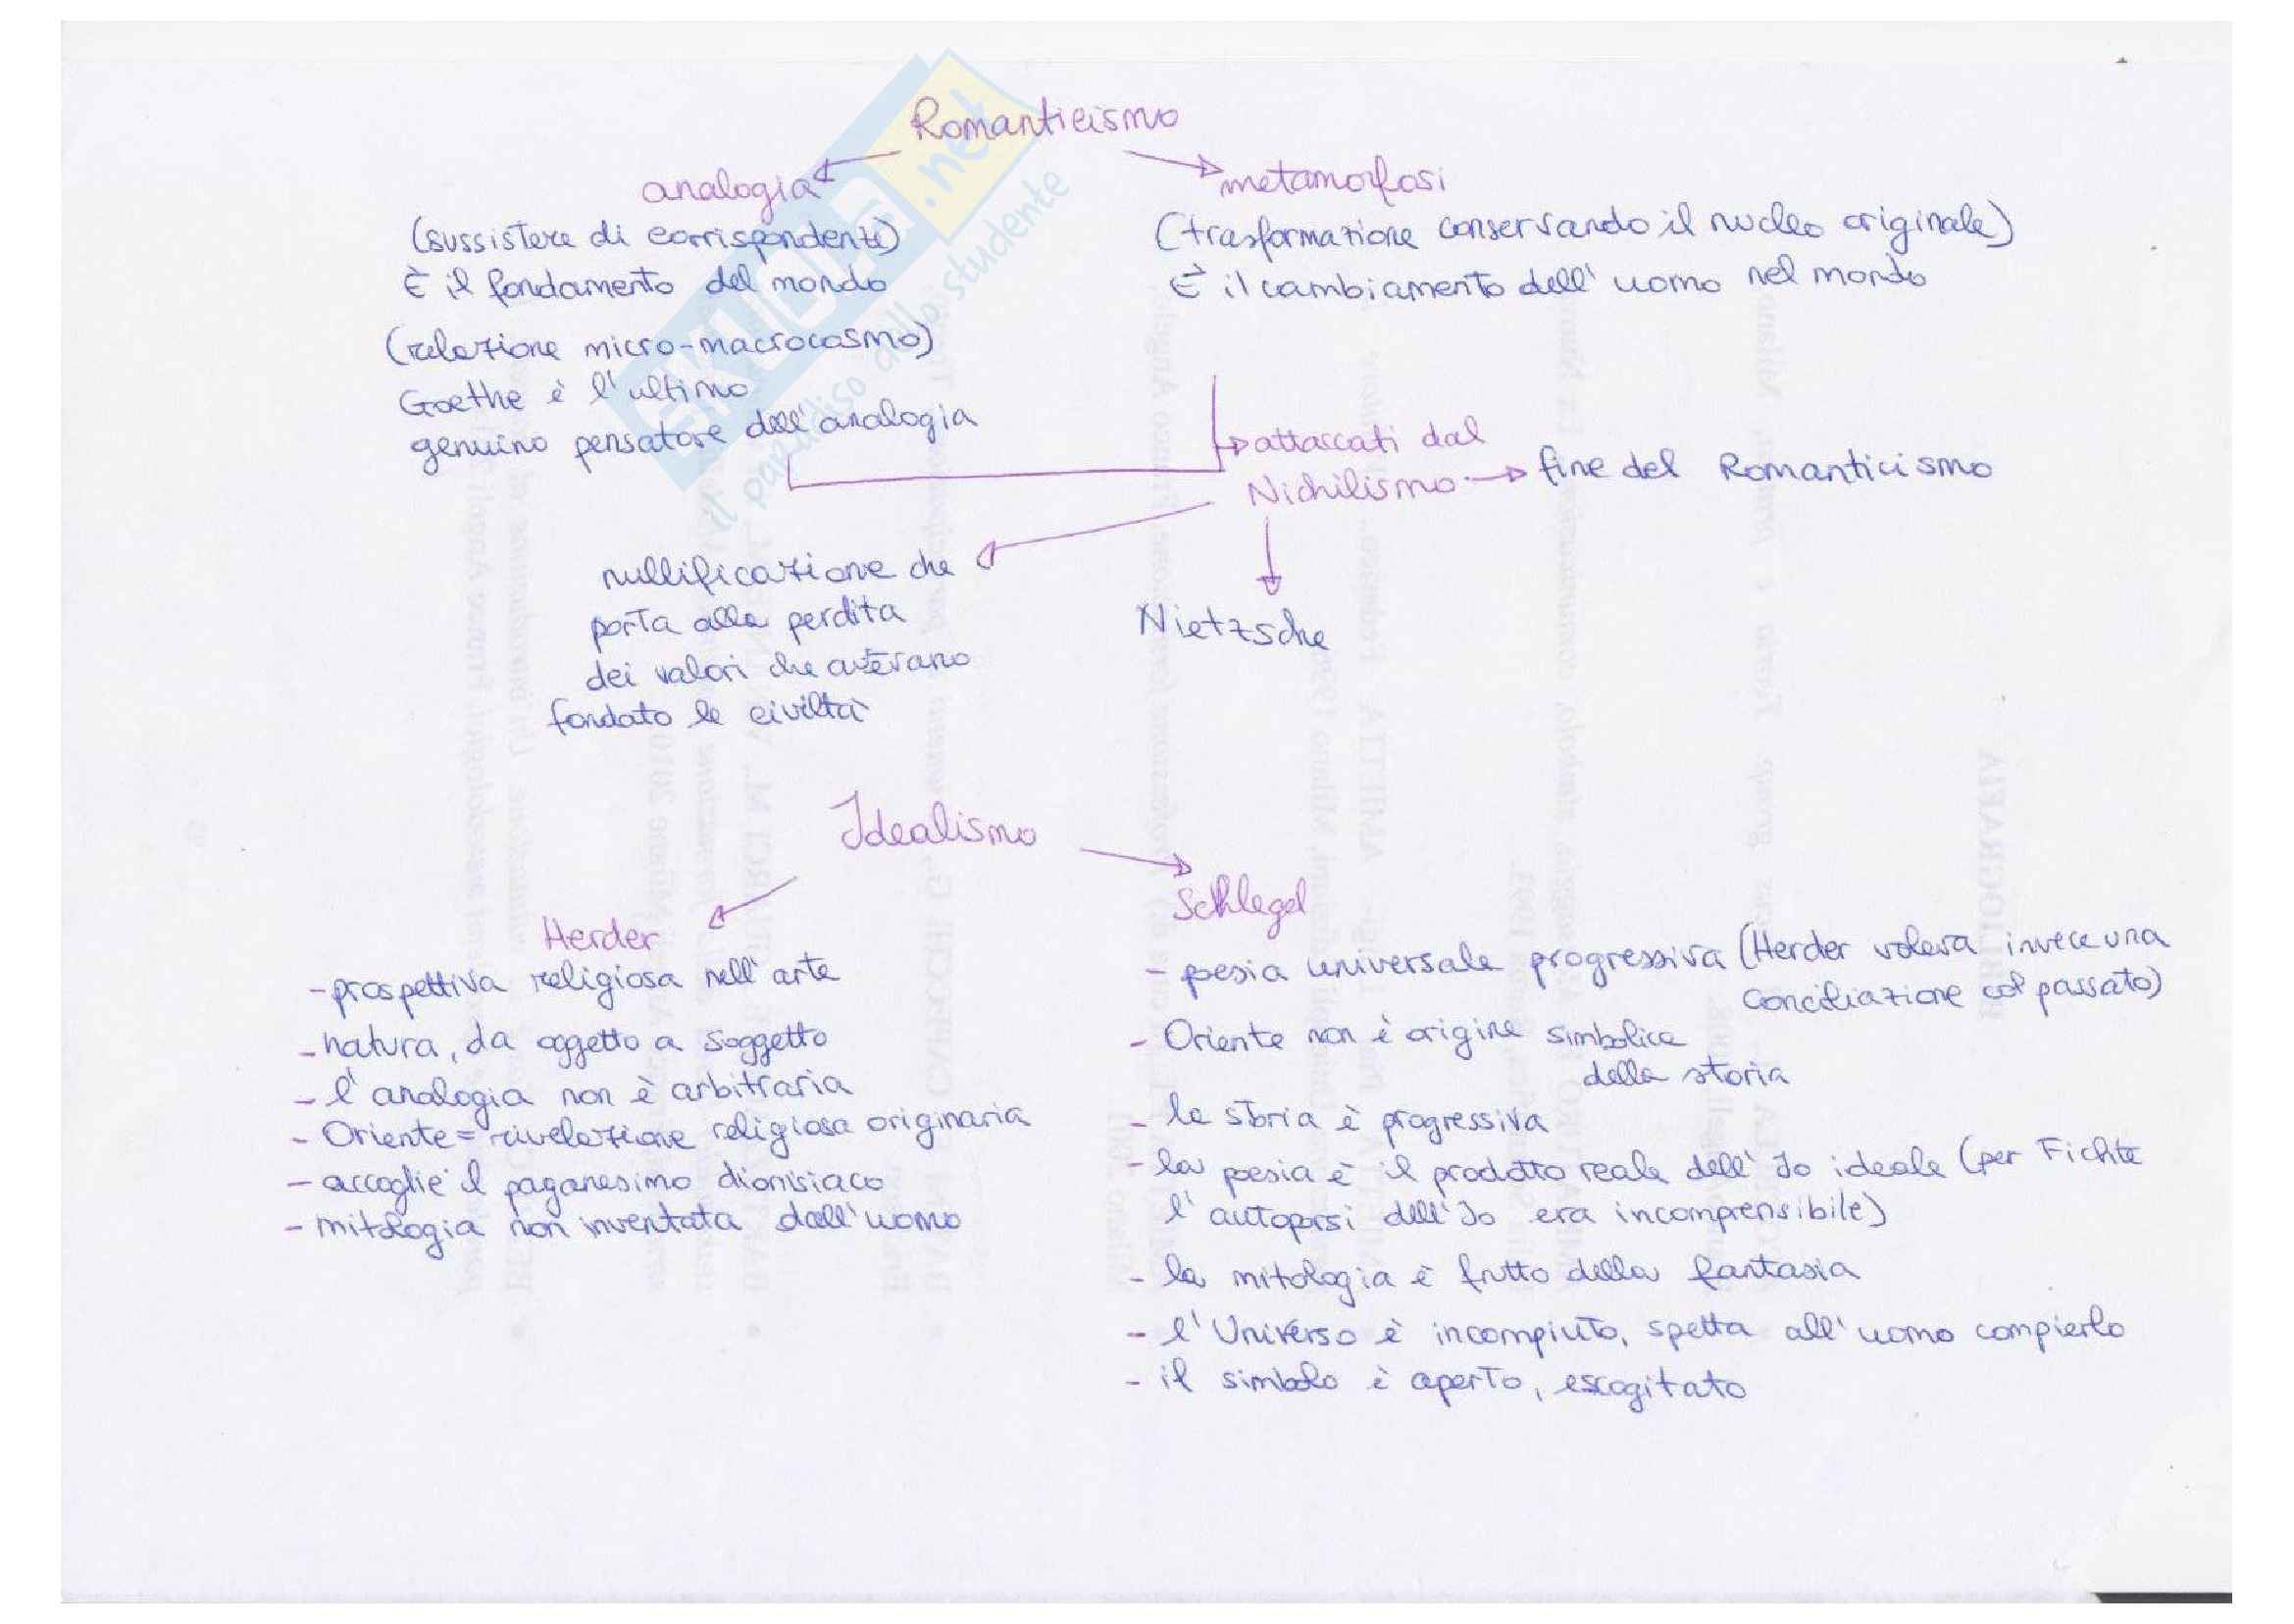 Romanticismo
analogia
(sussistere di corrispondente)
È il fondamento del mondo
(relazione micro-macrocosmo)
Goethe è l'ultimo
genuino pensatore dell'analogia
metamorfosi
(trasformazione conservando il nucleo originale)
È il cambiamento dell'uomo nel mondo
attaccati dal
Nichilismo
fine del Romanticismo
nullificazione che
porta alla perdita
dei valori che avevano
fondato le civiltà
Nietzsche
Idealismo
Herder
- prospettiva religiosa nell'arte
- natura, da oggetto a soggetto
- l'analogia non è arbitraria
- Oriente = rivelazione religiosa originaria
- accoglie il paganesimo dionisiaco
- mitologia non inventata dall'uomo
Schlegel
- poesia universale progressiva (Herder voleva invece una
conciliazione col passato)
- Oriente non è origine simbolica
della storia
- la storia è progressiva
- la poesia è il prodotto reale dell'Io ideale (per Fichte
l'autoporsi dell'Io era incomprensibile)
- la mitologia è frutto della fantasia
- l'Universo è incompiuto, spetta all'uomo compierlo
- il simbolo è aperto, escogitato
SKUOLA.net
il paradiso dello studente
BIBLIOGRAFIA